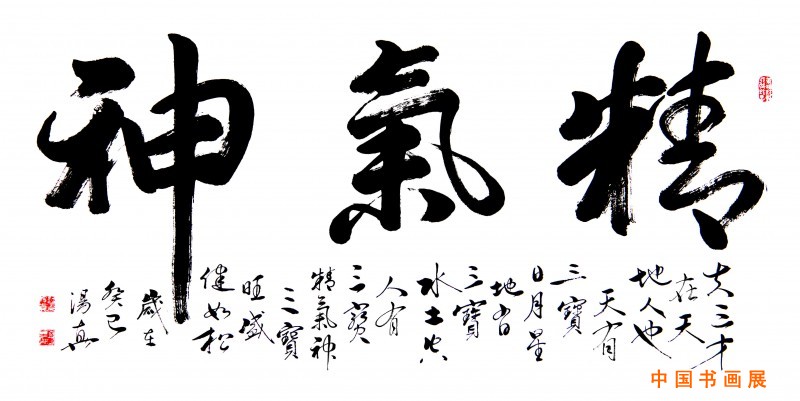 精氣神
夫三才
在天
地人也
天有
三寶
日月星
地有
三寶
水土
人有
三寶
精氣神
三寶
旺盛
健如松
歲在
癸巳
湯真
中国书画展